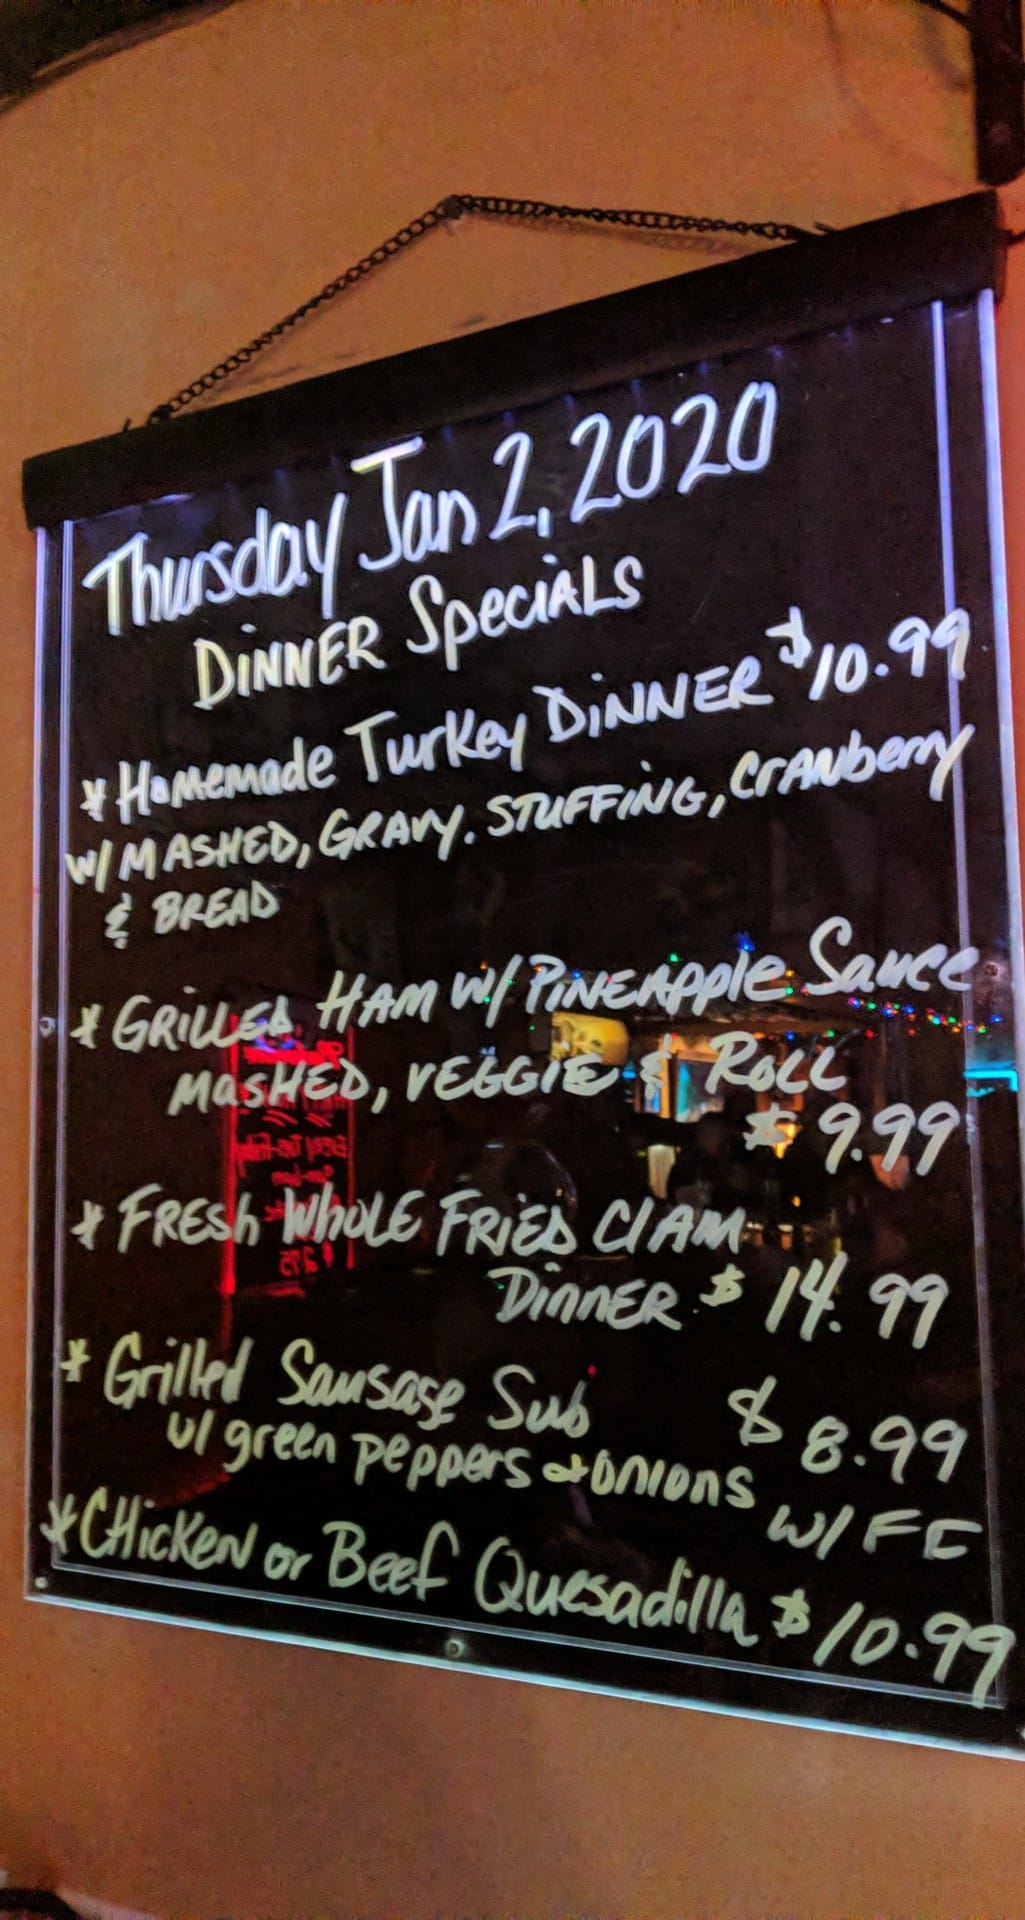 Thursday Jan 2, 2020
DINNER SpeciALS
* Homemade Turkey DINNER $10.99
w/ MASHED, GRAVY. STUFFING, CrANberry
& BREAD
* GRILLED HAM W/ PINEAPPle Sauce
MASHED, VEGGIE & ROLL
$ 9.99
* FRESh WhOLE FRIED ClAM
DinnER $ 14.99
* Grilled Sausage Sub $ 8.99
w/ green peppers & onions w/ FF
* CHicKEN or Beef Quesadilla $10.99